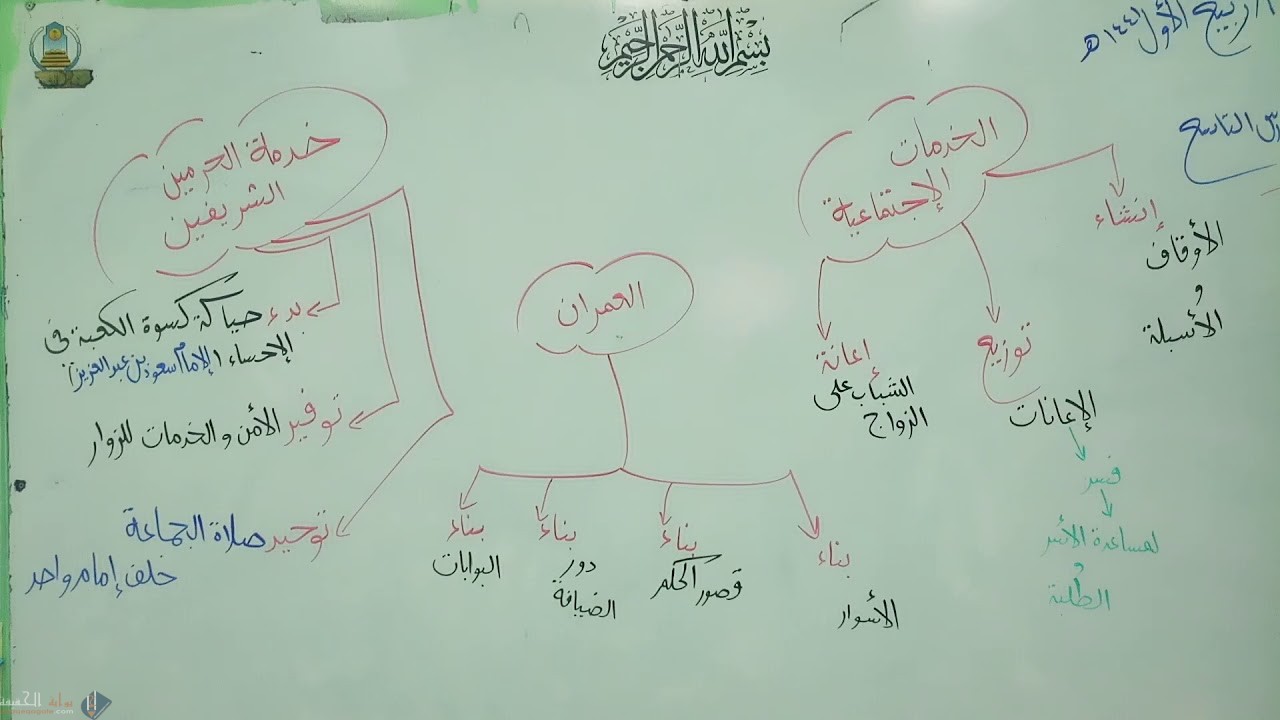 بسم الله الرحمن الرحيم
ربيع الأول ١٤٤١هـ
التاسع
الخدمات
الإجتماعية
إنشاء
الأوقاف
و
الأسبلة
توزيع
الإعانات
لمساعدة الأسر
و
الطلبة
إعانة
الشباب على
الزواج
العمران
بناء
الأسوار
بناء
قصور الحكم
بناء
دور
الضيافة
بناء
البوابات
خدمة الحرمين
الشريفين
بدء حياكة كسوة الكعبة في
الإحساء (الإمام سعود بن عبدالعزيز)
توفير الأمن والخدمات للزوار
توحيد صلاة الجماعة
خلف إمام واحد